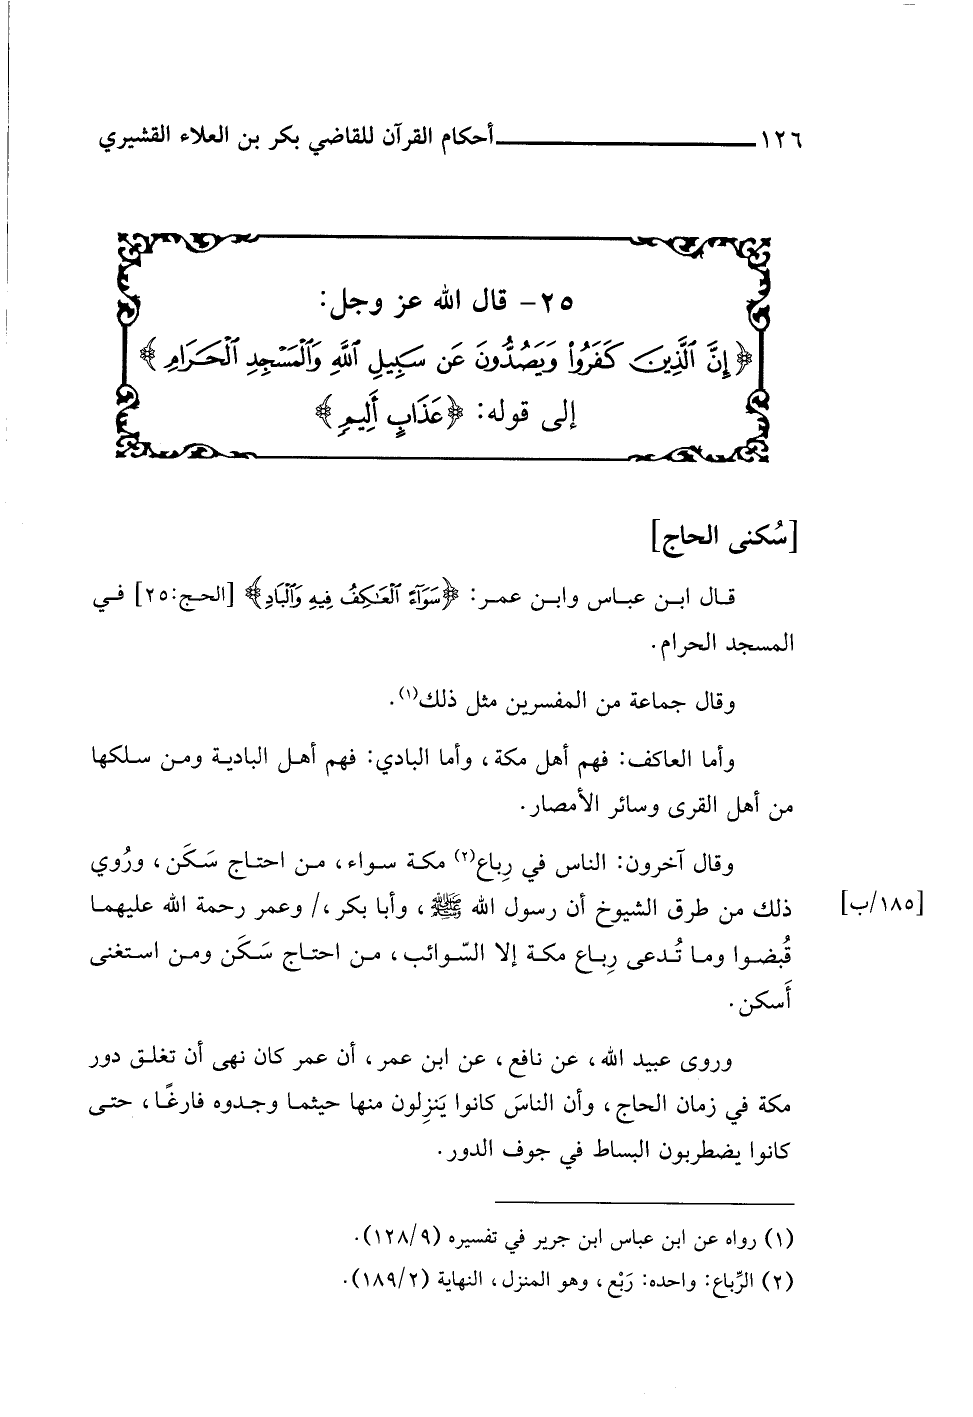 ١٢٦ أحكام القرآن للقاضي بكر بن العلاء القشيري
٢٥- قال الله عز وجل:
﴿إِنَّ ٱلَّذِينَ كَفَرُواْ وَيَصُدُّونَ عَن سَبِيلِ ٱللَّهِ وَٱلْمَسْجِدِ ٱلْحَرَامِ﴾
إلى قوله: ﴿عَذَابٍ أَلِيمٍ﴾
[سُكنى الحاج]
قال ابن عباس وابن عمر: ﴿سَوَآءً ٱلْعَٰكِفُ فِيهِ وَٱلْبَادِ﴾ [الحج:٢٥] في
المسجد الحرام.
وقال جماعة من المفسرين مثل ذلك(١).
وأما العاكف: فهم أهل مكة، وأما البادي: فهم أهل البادية ومن سلكها
من أهل القرى وسائر الأمصار.
وقال آخرون: الناس في رِباع(٢) مكة سواء، من احتاج سَكَن، ورُوي
ذلك من طرق الشيوخ أن رسول الله ﷺ، وأبا بكر،/ وعمر رحمة الله عليهما [١٨٥/ب]
قُبضوا وما تُدعى رِباع مكة إلا السّوائب، من احتاج سَكَن ومن استغنى
أَسكن.
وروى عبيد الله، عن نافع، عن ابن عمر، أن عمر كان نهى أن تغلق دور
مكة في زمان الحاج، وأن الناسَ كانوا يَنزِلون منها حيثما وجدوه فارغًا، حتى
كانوا يضطربون البساط في جوف الدور.
(١) رواه عن ابن عباس ابن جرير في تفسيره (١٢٨/٩).
(٢) الرِّباع: واحده: رَبْع، وهو المنزل، النهاية (١٨٩/٢).